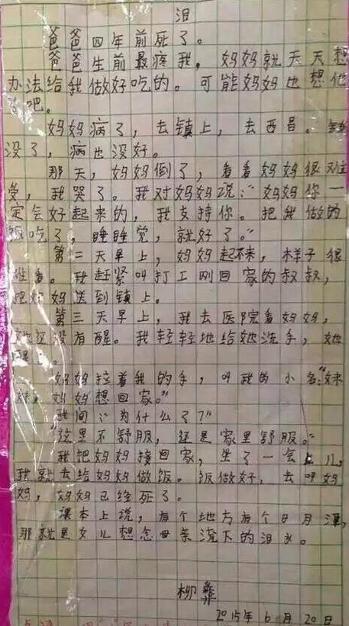 泪
爸爸四年前死了。
爸爸生前最疼我，妈妈就天天想
办法给我做好吃的。可能妈妈也想他
了吧。
妈妈病了，去镇上，去西昌。钱
没了，病也没好。
那天，妈妈倒了，看看妈妈很难
受，我哭了。我对妈妈说：“妈妈你一
定会好起来的，我支持你。把我做的
饭吃了，睡睡觉，就好了。”
第二天早上，妈妈起不来，样子很
难看。我赶紧叫打工刚回家的叔叔，
把妈妈送到镇上。
第三天早上，我去医院看妈妈，
她还没有醒。我轻轻地给她洗手，她
妈妈拉着我的手，叫我的小名：“妹
妹，妈妈想回家。”
我问：“为什么了？”
“这里不舒服，还是家里舒服。”
我把妈妈接回家，坐了一会儿，
我就去给妈妈做饭。饭做好，去叫妈
妈，妈妈已经死了。
课本上说，有个地方有个日月潭，
那就是女儿想念母亲流下的泪水。
柳彝
2015年6月20日